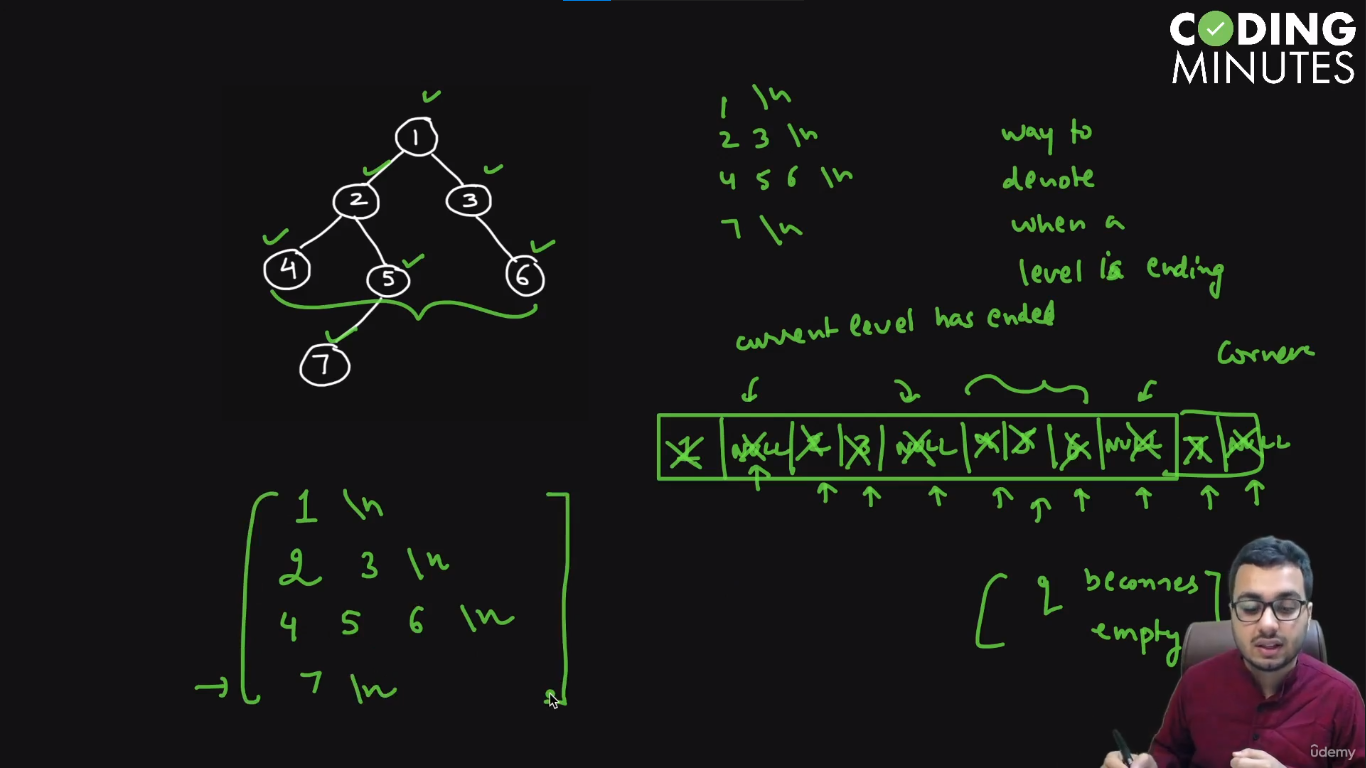 CODING
MINUTES
1
2
3
4
5
6
7
1 \n
2 3 \n
4 5 6 \n
7 \n
way to
denote
when a
level is ending
current level has ended
Corner
1 NULL 2 3 NULL 4 5 6 NULL 7 NULL
1 \n
2 3 \n
4 5 6 \n
7 \n
q becomes
empty
ûdemy